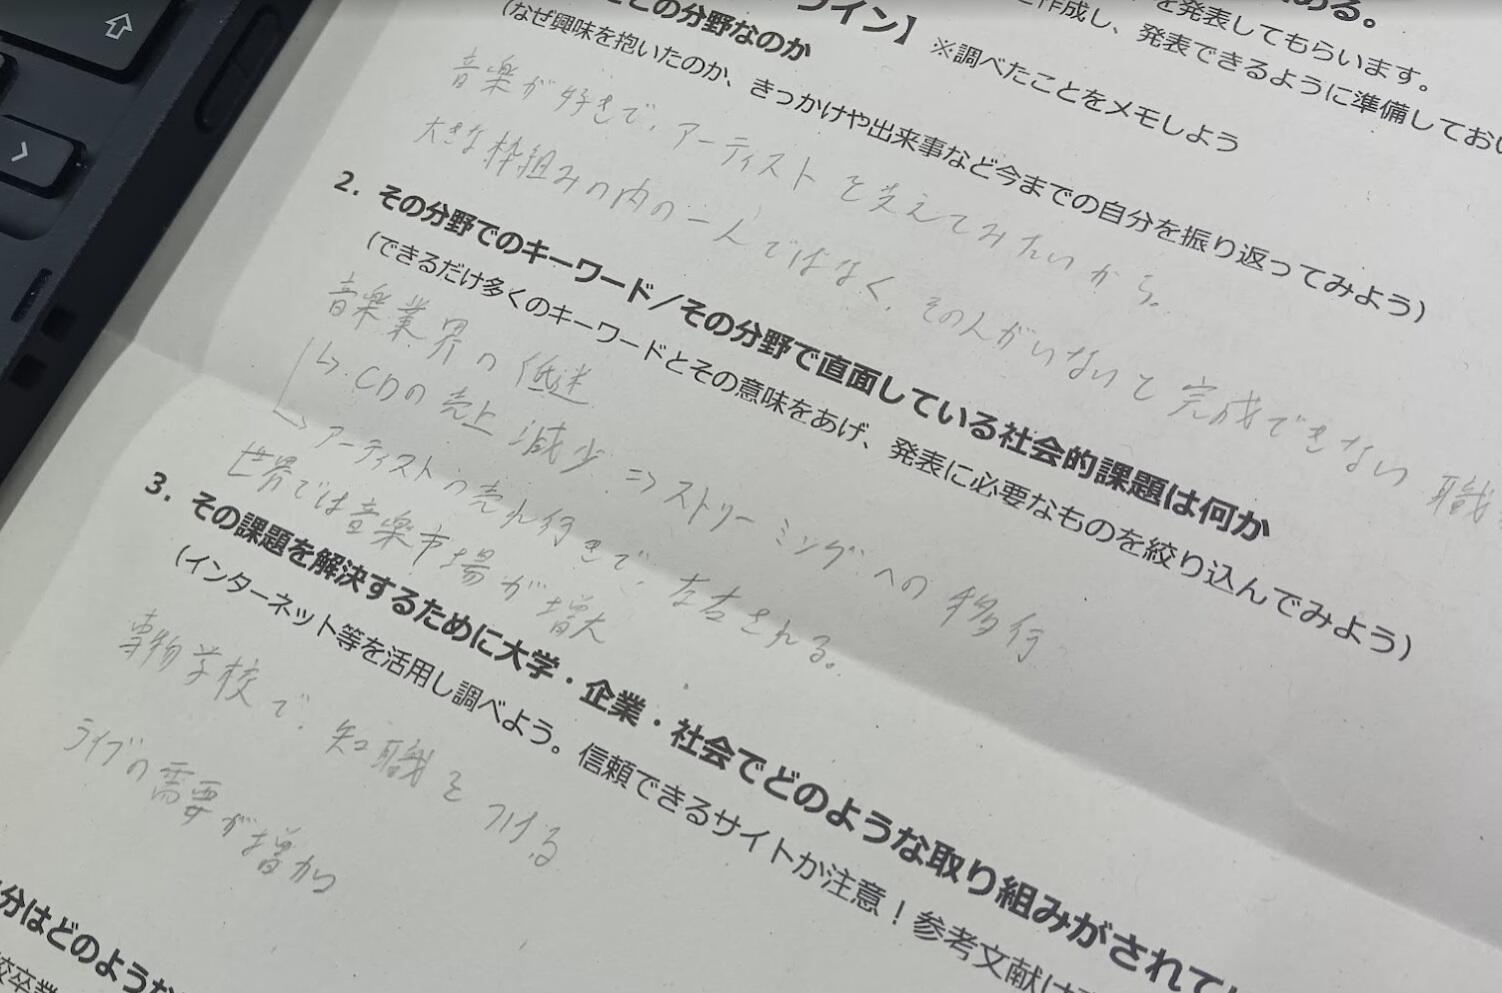 ある。
を発表してもらいます。
作成し、発表できるように準備しておい
ライン】 ※調べたことをメモしよう
この分野なのか
(なぜ興味を抱いたのか、きっかけや出来事など今までの自分を振り返ってみよう)
音楽が好きで、アーティストを支えてみたいから。
大きな枠組みの内の一人ではなく、その人がいないと完成できない職
2．その分野でのキーワード／その分野で直面している社会的課題は何か
(できるだけ多くのキーワードとその意味をあげ、発表に必要なものを絞り込んでみよう)
音楽業界の低迷
↳ CDの売上減少 ⇒ ストリーミングへの移行
→ アーティストの売れ行きで、左右される。
世界では音楽市場が増大
3．その課題を解決するために大学・企業・社会でどのような取り組みがされて
(インターネット等を活用し調べよう。信頼できるサイトか注意！参考文献は
専物学校で、知職をつける
ライブの需要が増加
分はどのような
校卒業